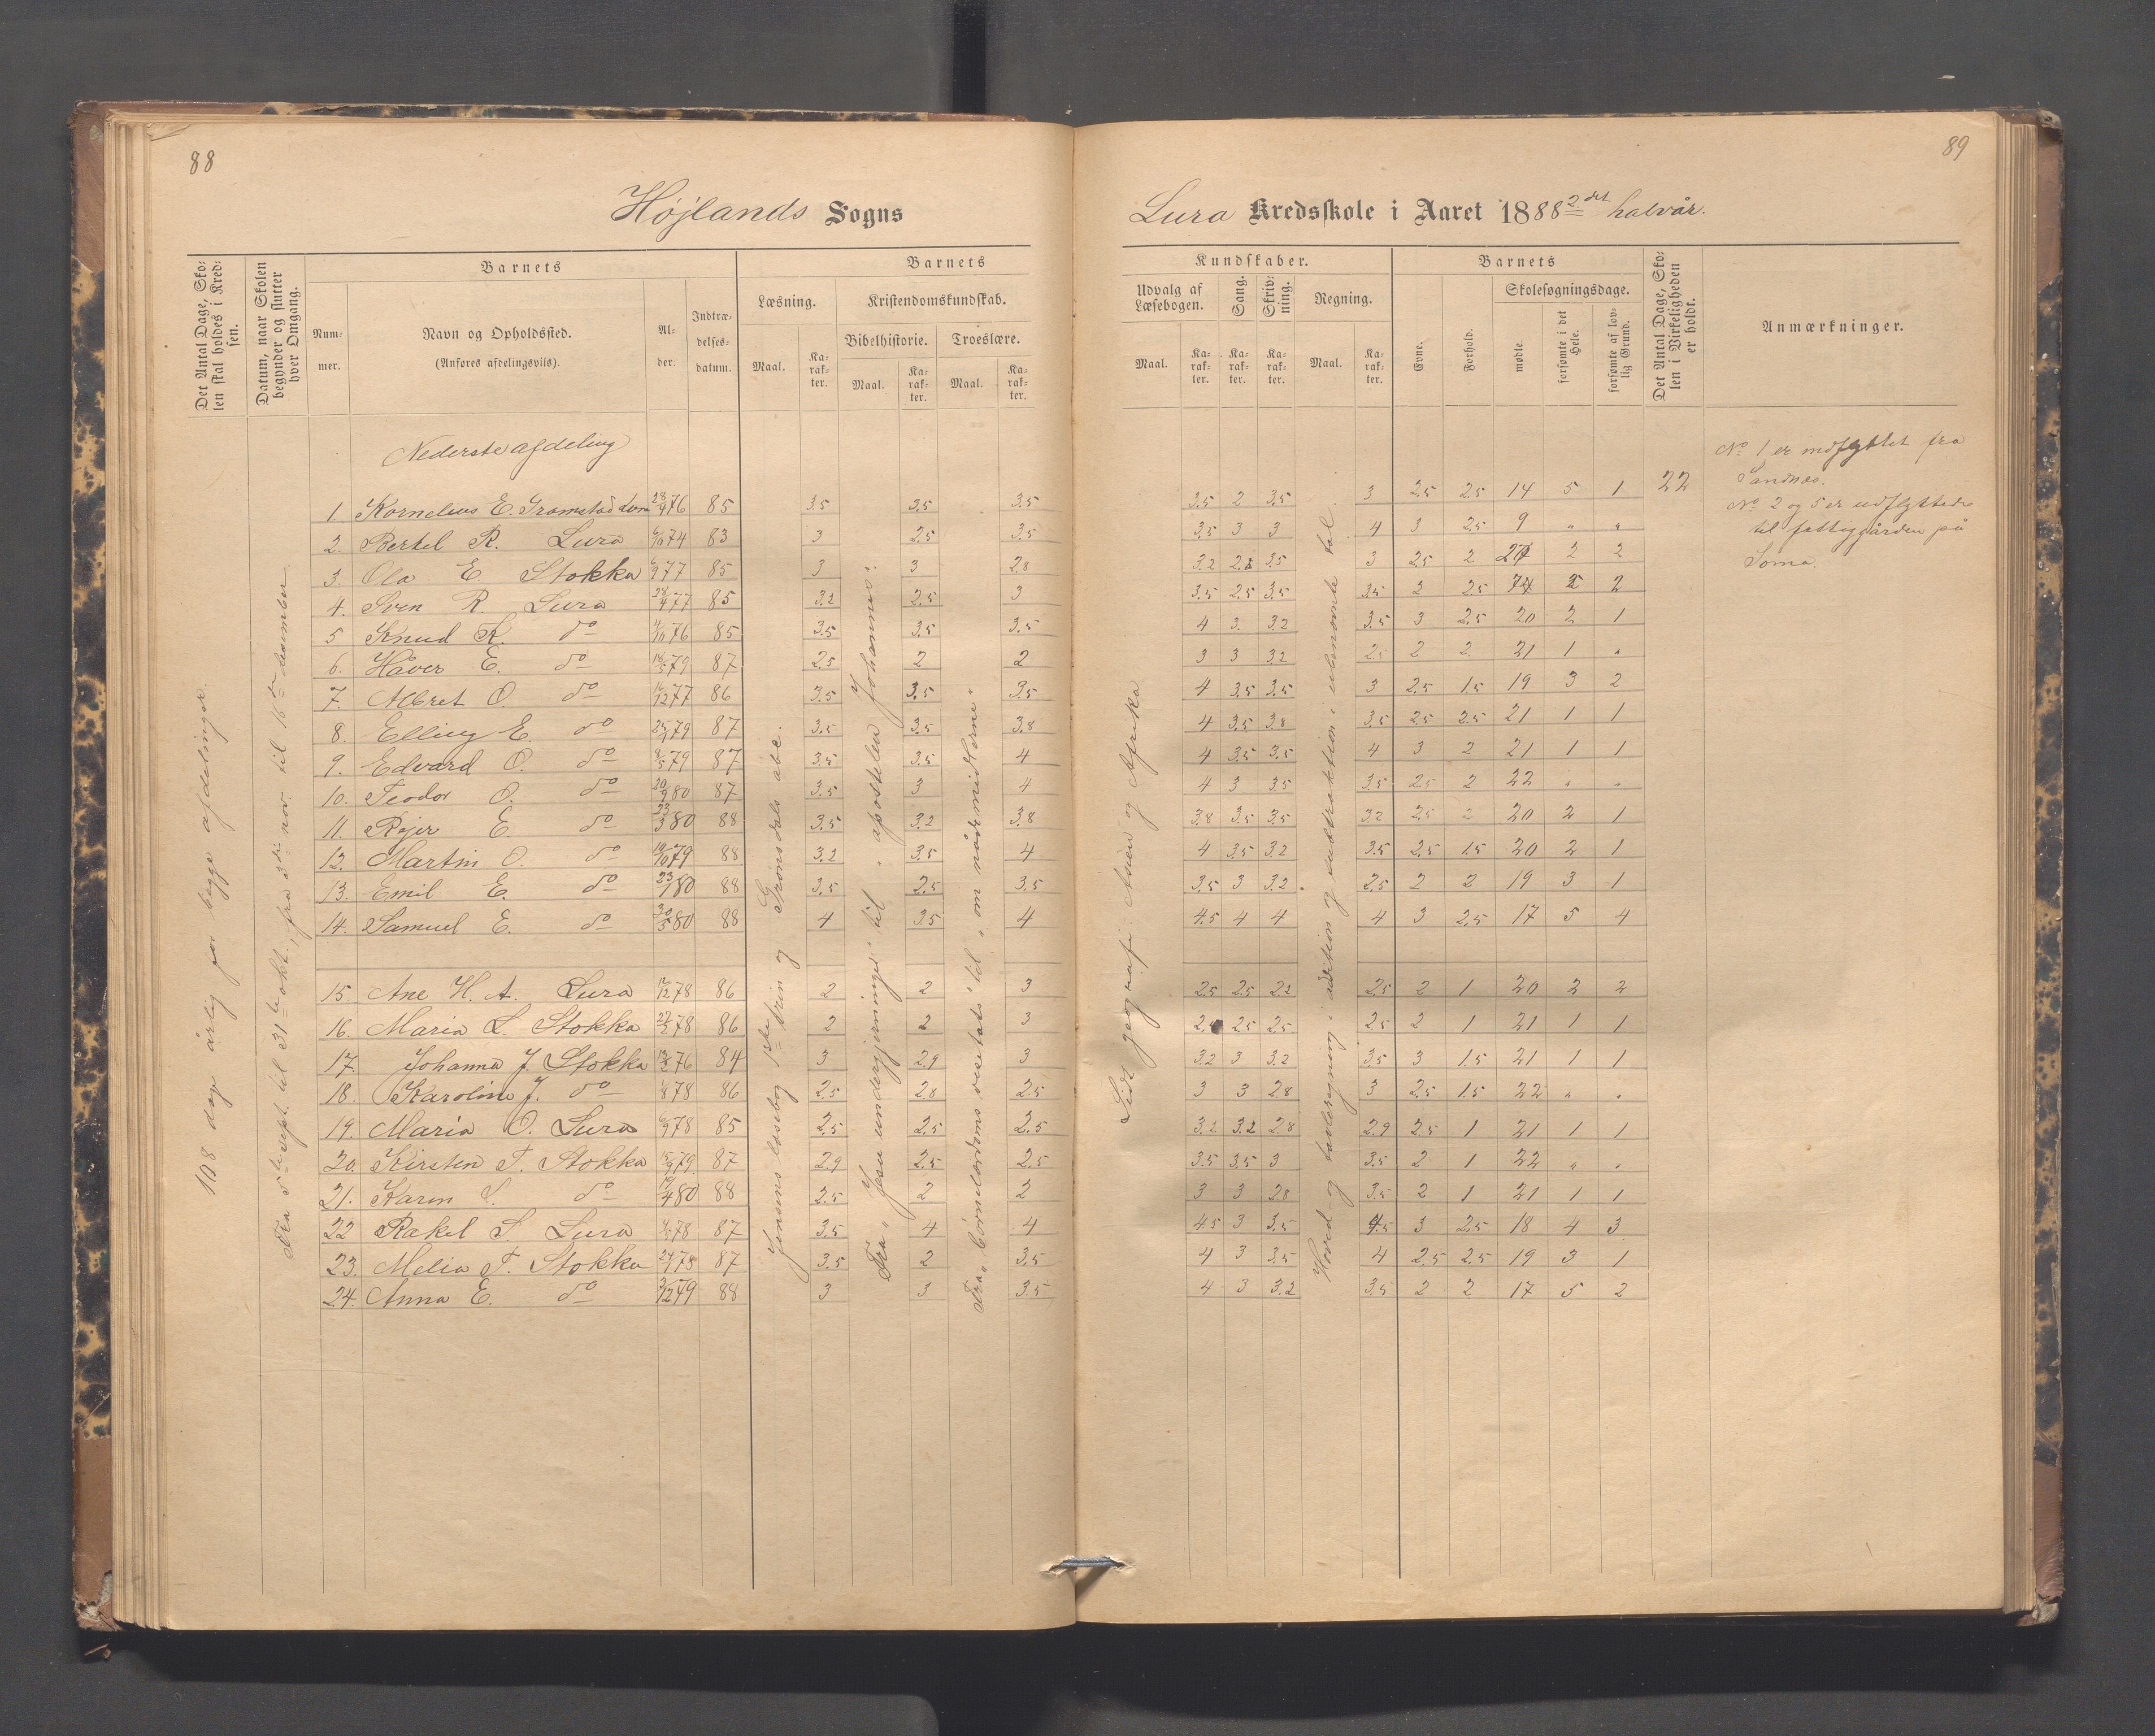 88
Højlands Sogns
Det Antal Dage, Skolen skal holdes i Kredsen.
Datum, naar Skolen begynder og slutter hver Omgang.
Barnets
Nummer.
Navn og Opholdssted.
(Anføres afdelingsvils).
Alder.
Indtrædelsesdatum.
Barnets
Læsning.
Kristendomskundskab.
Bibelhistorie.
Troeslære.
Maal.
Karakter.
Maal.
Karakter.
Maal.
Karakter.
108 dage årlig for begge afdelinger.
Fra 5te sept. til 31te okt., fra 3die nov. til 16de desember
Jensens læsebog 1ste trin og Grønsdals abc.
Fra „Jesu undergjerninger“ til „apostelen Johannes“.
Fra „börnelærdoms visitats“ til „om nådemidlerne“
Nederste afdeling
1. Kornelius E. Gramstad Lura 28/9 76 85 3.5 3.5 3.5
2. Bertel R. Lura 6/10 74 83 3 2.5 3.5
3. Ola E. Stokka 6/9 77 85 3 3 2.8
4. Sven R. Lura 28/4 77 85 3.2 2.5 3
5 Knud R. do 4/10 76 85 3.5 3.5 3.5
6. Håver E. do 14/5 79 87 2.5 2 2
7. Albret O. do 16/12 77 86 3.5 3.5 3.5
8. Elling E. do 79 87 3.5 3.5 3.8
9. Edvard O. do 8/5 79 87 3.5 3.5 4
10. Teodor O. do 20/9 80 87 3.5 3 4
11. Rejer E. do 23/3 80 88 3.5 3.2 3.8
12. Martin O. do 19/10 79 88 3.2 3.5 4
13. Emil E. do 23/1 80 88 3.5 2.5 3.5
14. Samuel E. do 30/5 80 88 4 3.5 4
15. Ane H. A. Lura 12/12 78 86 2 2 3
16. Maria L. Stokka 27/2 78 86 2 2 3
17. Johanna J. Stokka 76 84 3 2.9 3
18. Karoline J. do 78 86 2.5 2.8 2.5
19. Maria O. Lura 6/9 78 85 2.5 2.5 2.5
20. Kirsten T. Stokka 15/9 79 87 2.9 2.5 2.5
21. Karen S. do 19/4 80 88 2.5 2 2
22 Rakel S. Lura 78 87 3.5 4 4
23. Melia T. Stokka 78 87 3.5 2 3.5
24. Anna E. do 2/12 79 88 3 3 3.5
89
Lura Kredsskole i Aaret 1888 2det halvår.
Kundskaber.
Udvalg af Læsebogen.
Sang.
Skrivning.
Regning.
Maal.
Karakter.
Karakter.
Karakter.
Maal.
Karakter.
Barnets
Evne.
Forhold.
Skolesøgningsdage.
mødte.
forsømte i det Hele.
forsømte af lovlig Grund.
Det Antal Dage, Skolen i Virkeligheden er holdt.
Anmærkninger.
Lidt geografi: Asien og Afrika
Hoved- og tavleregning i addition og subtraktion i ubenævnte tal.
3.5 2 3.5 3 2.5 2.5 14 5 1 22
3.5 3 3 4 3 2.5 9 „ „
3.2 3.5 3 2.5 2 2 2
3.5 2.5 3.5 3.5 3 2.5 2
4 3. 3.2 3.5 3 2.5 20 2 1
3 3 3.2 2.5 2 2 21 1 „
4 3.5 3.5 3 2.5 1.5 19 3 2
4 3.5 3.8 3.5 2.5 2.5 21 1 1
4 3.5 3.5 4 3 2 21 1 1
4 3 3.5 3.5 2.5 2 22 „ „
3.8 3.5 3.5 3.2 2.5 2 20 2 1
4 3.5 3.2 3.5 2.5 1.5 20 2 1
3.5 3 3.2 2.5 2 2 19 3 1
4.5 4 4 4 3 2.5 17 5 4
2.5 2.5 2.2 2.5 2 1 20 2 2
2.5 2.5 2.5 2 1 21 1 1
3.2 3 3.2 3.5 3 1.5 21 1 1
3 3 2.8 3 2.5 1.5 22 „ „
3.2 3.2 2.8 2.9 2.5 1 21 1 1
3.5 3.5 3 3.5 2 1 22 „ „
3 3 2.8 3.5 2 1 21 1 1
4.5 3 3.5 4.5 3 2.5 18 4 3
4 3 3.5 4 2.5 2.5 19 3 1
4 3 3.2 3.5 2 2 17 5 2
No 1 er indflyttet fra
Sandnes.
No 2 og 5 er udflyttede
til fattiggården på
Soma.